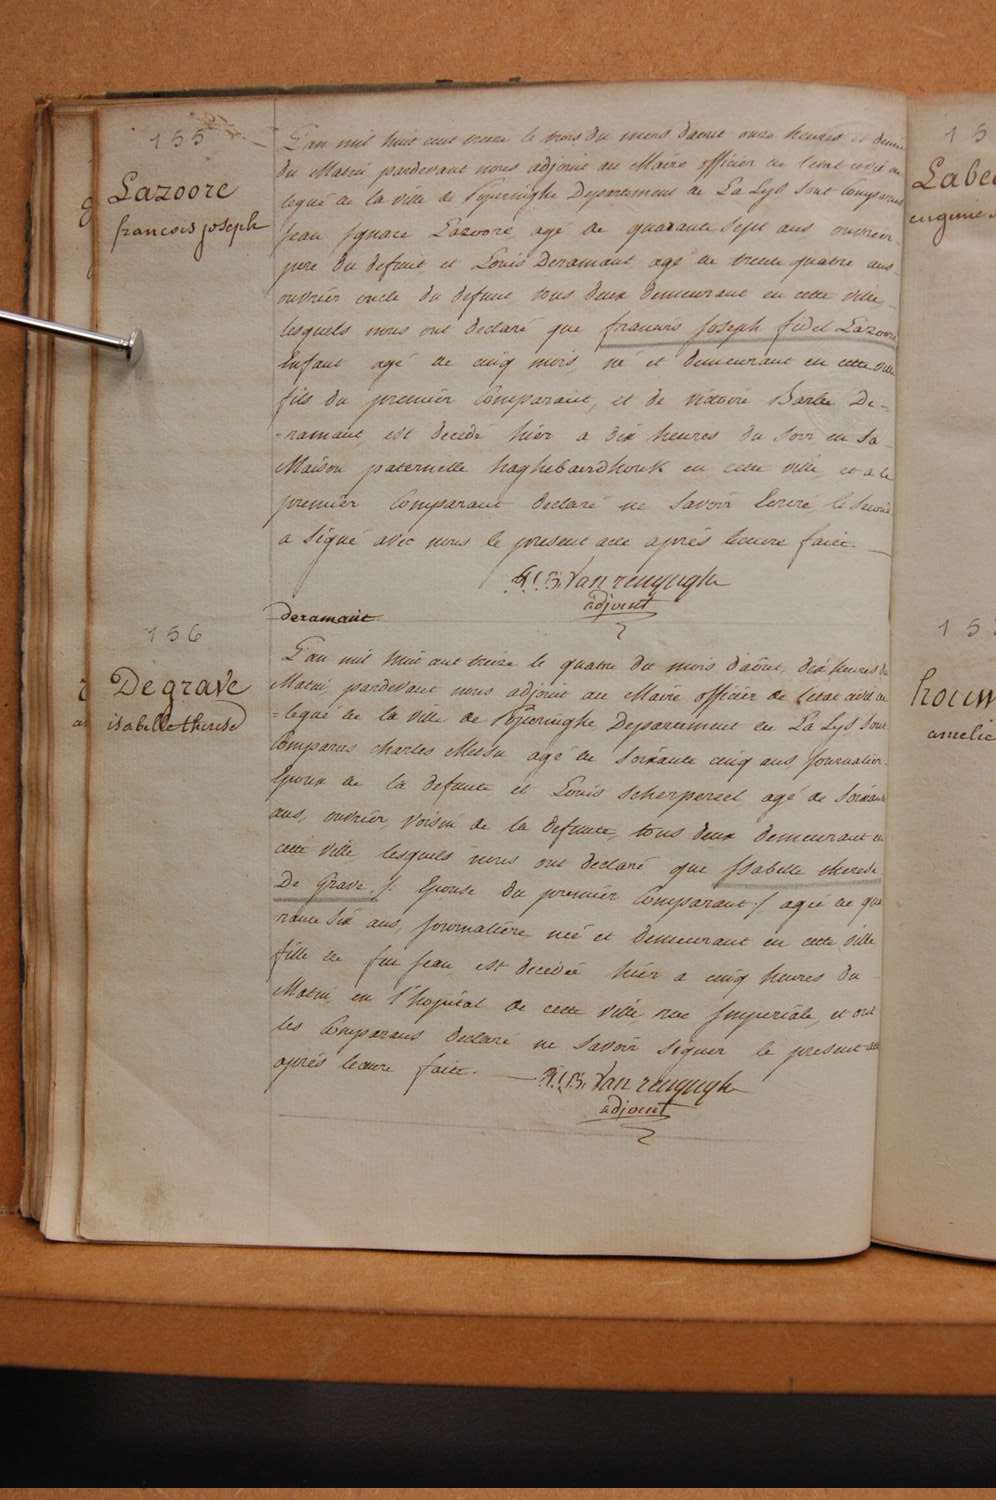 155
Lazoore
francois joseph
L'an mil huit cent treize le trois du mois daout onze heures et demie
du Matin pardevant nous adjoint au Maire officier de l'etat civil de
legué de la ville de Poperinghe Departement de La Lys sont Comparus
jean Ignace Lazoore agé de quarante sept ans ouvrier
pere du defunt et Louis Deramaut agé de trente quatre ans
ouvrier oncle du defunt tous deux demeurant en cette ville,
lesquels nous ont declaré que francois Joseph fidel Lazoore
Enfant agé de cinq mois, né et demeurant en cette ville
fils du premier Comparant, et de victoire Barbe De=
=ramaut, est decedé hier a dix heures du soir en sa
Maison paternelle haghebaerdhouk en cette ville, et a le
premier Comparant declaré ne savoir Ecrire le second
a signé avec nous le present acte aprés lecture faite.
Van renynghe
adjoint
deramaut
156
Degrave
isabelle therese
L'an mil huit cent treize le quatre du mois d'août, dix heures du
Matin, pardevant nous adjoint au Maire officier de l'etat civil de
=legué de la ville de Poperinghe, Departement de La Lys, sont
Comparus charles Mesu agé de soixante cinq ans journalier
Epoux de la defunte et Louis scherpereel agé de soixante
ans, ouvrier, voisin de la defunte, tous deux demeurant en
cette ville lesquels nous ont declaré que Isabelle therese
De Grave ./: Epouse du premier Comparant ./ agée de qua
rante six ans, journaliere née et demeurant en cette ville
fille de feu jean, est decedée hier a cinq heures du
Matin, en l'hopital de cette ville rue Imperiale, et ont
les Comparans declaré ne savoir signer le present acte
aprés lecture faite.
Van renynghe
adjoint
15
Labe
eugenie
15
houw
amelie